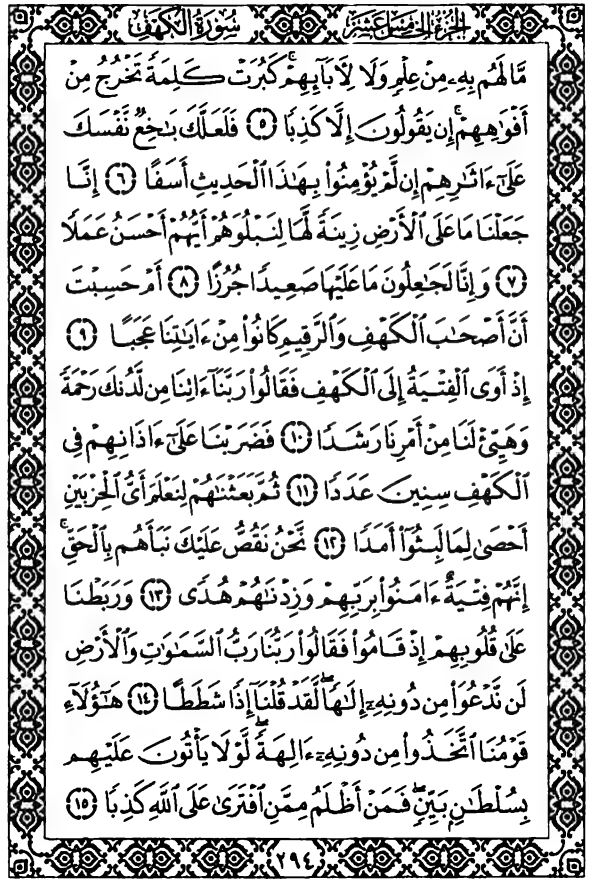 الجزء الخامس عشر سورة الكهف
مَّا لَهُم بِهِۦ مِنْ عِلْمٍ وَلَا لِآبَآئِهِمْ ۚ كَبُرَتْ كَلِمَةً تَخْرُجُ مِنْ
أَفْوَٰهِهِمْ ۚ إِن يَقُولُونَ إِلَّا كَذِبًا ۝٥ فَلَعَلَّكَ بَٰخِعٌ نَّفْسَكَ
عَلَىٰٓ ءَاثَٰرِهِمْ إِن لَّمْ يُؤْمِنُوا۟ بِهَٰذَا ٱلْحَدِيثِ أَسَفًا ۝٦ إِنَّا
جَعَلْنَا مَا عَلَى ٱلْأَرْضِ زِينَةً لَّهَا لِنَبْلُوَهُمْ أَيُّهُمْ أَحْسَنُ عَمَلًا
۝٧ وَإِنَّا لَجَٰعِلُونَ مَا عَلَيْهَا صَعِيدًا جُرُزًا ۝٨ أَمْ حَسِبْتَ
أَنَّ أَصْحَٰبَ ٱلْكَهْفِ وَٱلرَّقِيمِ كَانُوا۟ مِنْ ءَايَٰتِنَا عَجَبًا ۝٩
إِذْ أَوَى ٱلْفِتْيَةُ إِلَى ٱلْكَهْفِ فَقَالُوا۟ رَبَّنَآ ءَاتِنَا مِن لَّدُنكَ رَحْمَةً
وَهَيِّئْ لَنَا مِنْ أَمْرِنَا رَشَدًا ۝١٠ فَضَرَبْنَا عَلَىٰٓ ءَاذَانِهِمْ فِى
ٱلْكَهْفِ سِنِينَ عَدَدًا ۝١١ ثُمَّ بَعَثْنَٰهُمْ لِنَعْلَمَ أَىُّ ٱلْحِزْبَيْنِ
أَحْصَىٰ لِمَا لَبِثُوٓا۟ أَمَدًا ۝١٢ نَّحْنُ نَقُصُّ عَلَيْكَ نَبَأَهُم بِٱلْحَقِّ ۚ
إِنَّهُمْ فِتْيَةٌ ءَامَنُوا۟ بِرَبِّهِمْ وَزِدْنَٰهُمْ هُدًى ۝١٣ وَرَبَطْنَا
عَلَىٰ قُلُوبِهِمْ إِذْ قَامُوا۟ فَقَالُوا۟ رَبُّنَا رَبُّ ٱلسَّمَٰوَٰتِ وَٱلْأَرْضِ
لَن نَّدْعُوَا۟ مِن دُونِهِۦٓ إِلَٰهًا ۖ لَّقَدْ قُلْنَآ إِذًا شَطَطًا ۝١٤ هَٰٓؤُلَآءِ
قَوْمُنَا ٱتَّخَذُوا۟ مِن دُونِهِۦٓ ءَالِهَةً ۖ لَّوْلَا يَأْتُونَ عَلَيْهِم
بِسُلْطَٰنٍۭ بَيِّنٍ ۖ فَمَنْ أَظْلَمُ مِمَّنِ ٱفْتَرَىٰ عَلَى ٱللَّهِ كَذِبًا ۝١٥
٢٩٤